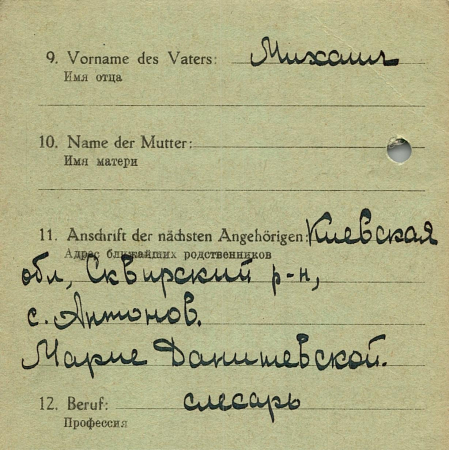 9. Vorname des Vaters: Михаил
Имя отца
10. Name der Mutter:
Имя матери
11. Anschrift der nächsten Angehörigen: Киевская
Адрес ближайших родственников
обл, Сквирский р-н,
с. Антонов.
Марие Данишевской.
12. Beruf: слесарь
Профессия